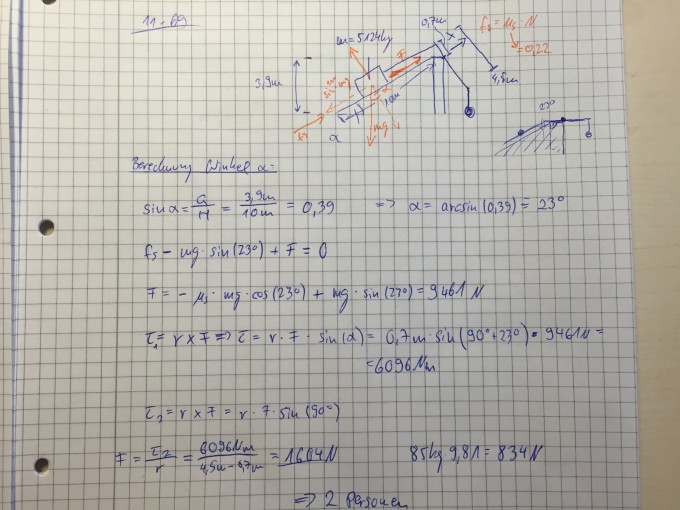 11-69
m=5124kg
0,7m
x
fs = μs · N
=0,22
3,9m
F
4,5m
10m
α
mg
23°
Berechnung Winkel α:
sin α = G/H = 3,9m/10m = 0,39 => α = arcsin(0,39) = 23°
fs - mg · sin(23°) + F = 0
F = - μs · mg · cos(23°) + mg · sin(23°) = 9461 N
τ1 = r x F => τ = r · F · sin(α) = 0,7m · sin(90°+23°) · 9461N =
= 6096Nm
τ2 = r x F = r · F · sin(90°)
F = τ2/r = 6096Nm/4,5m-0,7m = 1604N 85kg 9,81 = 834N
=> 2 Personen